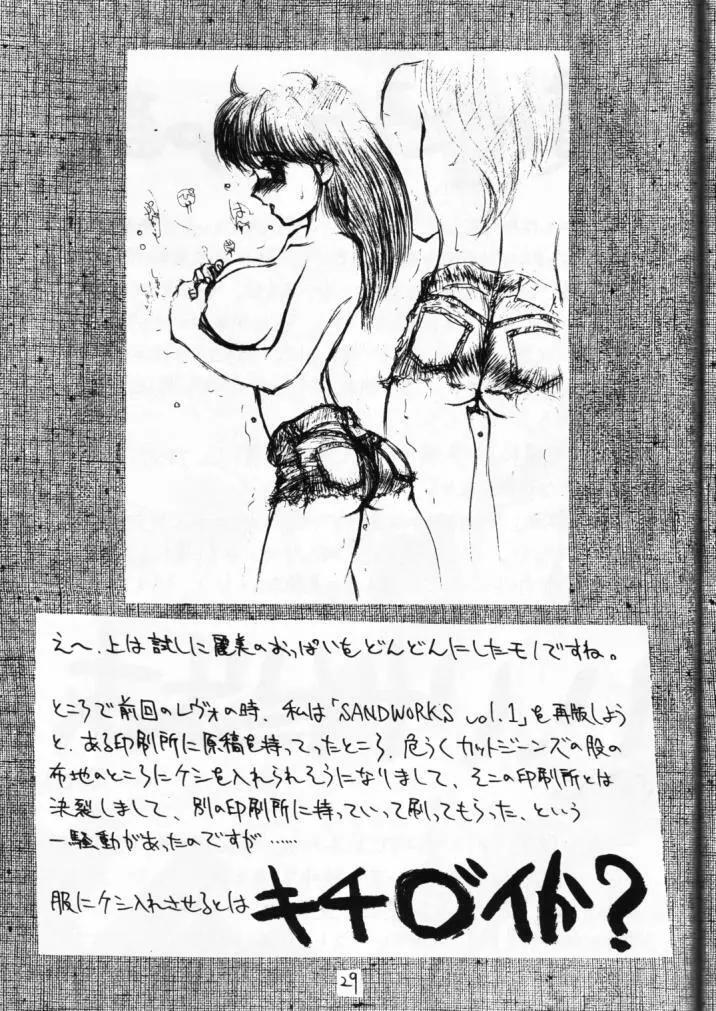 え〜、上は試しに麗美のおっぱいをどんどんにしたモノですね。
ところで前回のレヴォの時、私は「SANDWORKS vol.1」を再版しよう
と、ある印刷所に原稿を持ってったところ、危うくカットジーンズの股の
布地のところにケシを入れられそうになりまして、そこの印刷所とは
決裂しまして、別の印刷所に持っていって刷ってもらった、という
一騒動があったのですが……
服にケシ入れさせるとは キチ○ガイか?
29